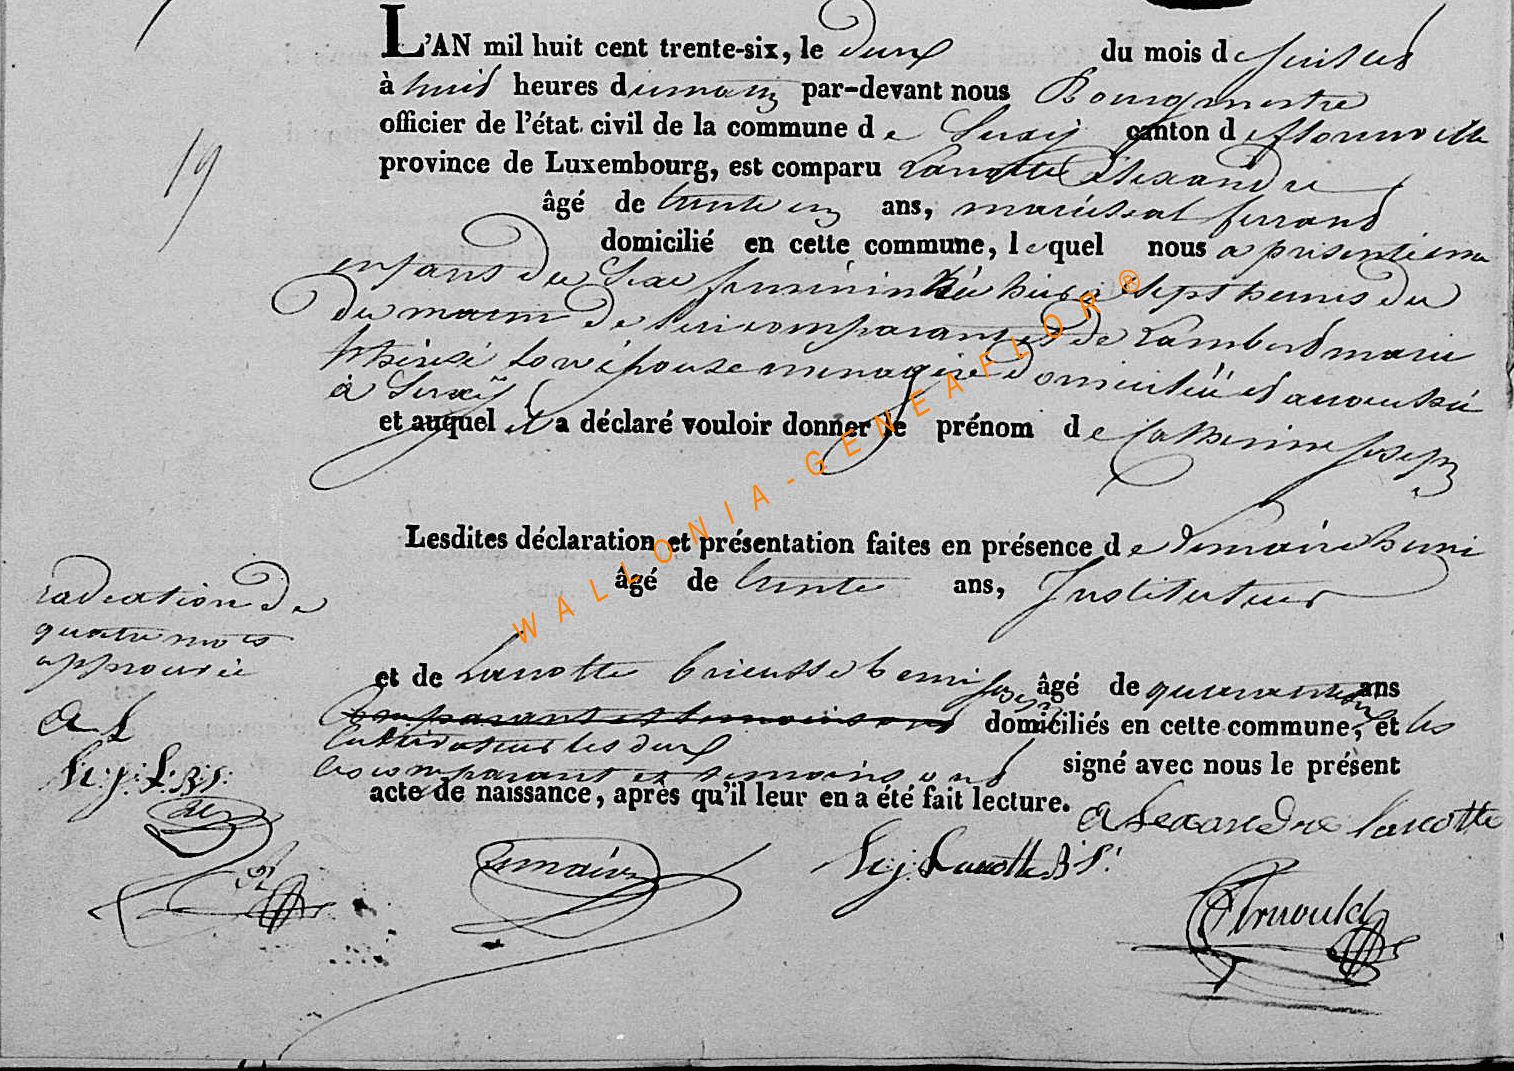 L'AN mil huit cent trente-six, le deux du mois de juillet
à huit heures du matin par-devant nous Bourgmestre
officier de l'état civil de la commune de Suxy canton de florenville
province de Luxembourg, est comparu Lanotte Alexandre
19
âgé de trente un ans, maréchal ferrand
domicilié en cette commune, lequel nous a présenté un
enfant du Sexe féminin Née hier à sept heures du
du matin de lui comparant et de Lambert marie
thérèse son épouse menagère domiciliée et accouchée
à Suxÿ
et auquel il a déclaré vouloir donner le prénom de Catherine Joseph
WALLONIA-GENEAFLOR®
Lesdites déclaration et présentation faites en présence de Lemaire henri
âgé de trente ans, Instituteur
radiation de
quatre mots
approuvée
et de Lanotte henri Joseph âgé de quarante ans
Comparant et temoins ont domiciliés en cette commune, et les
Cultivateur les deux
les comparant et temoins ont signé avec nous le présent
acte de naissance, après qu'il leur en a été fait lecture.
A L
h: j: L: B:S:
alexandre lanotte
Lemaire
h:j: Lanotte B:S:
Arnould